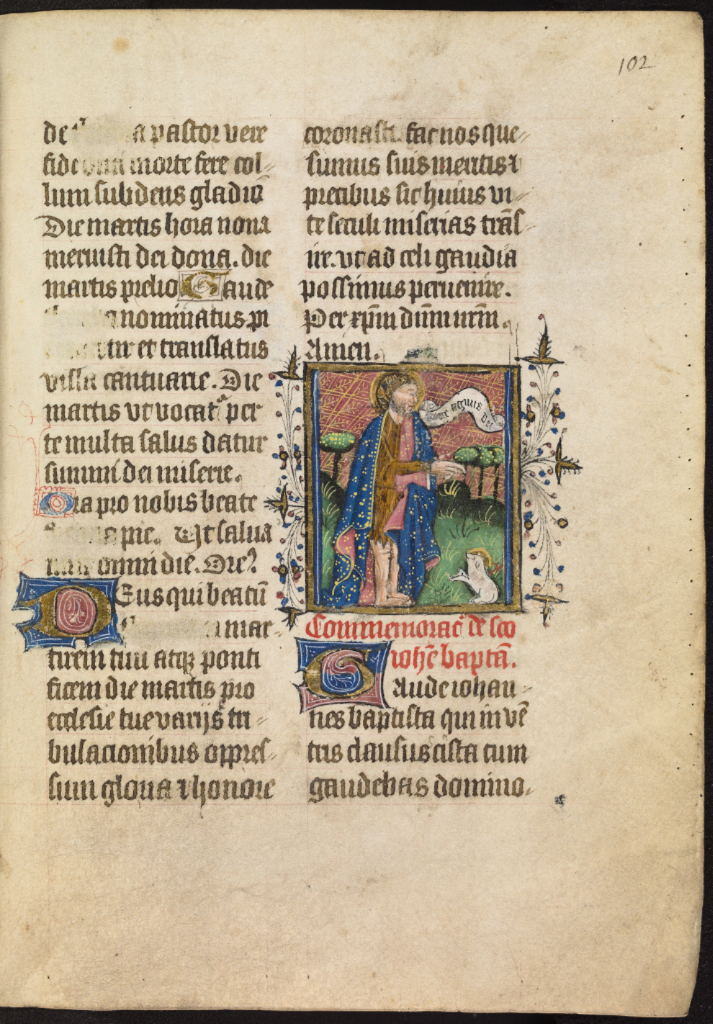 102
de a pastor vere
fide morte fere col
lum subdens gladio
Die martis hora nona
meruisti dei dona. die
martis prelio Gaude
nominatus pi
tir et translatus
villa cantuarie. Die
martis vt vocat᷑ per
te multa salus datur
summi dei miserie.
Ora pro nobis beate
pie. Vt salua
omni die. Ore᷑
Deus qui beatū
a mar
tirem tuū atqꝫ ponti
ficem die martis pro
ecclesie tue varijs tri
bulacionibus oppres
sum gloria ⁊ honore
coronasti. fac nos que
sumus suis meritis ⁊
precibus sic huius vi
te seculi miserias trās
ire. vt ad celi gaudia
possimus peruenire.
Per xp̄m dn̄m nr̄m.
Amen.
Commemorac̄ de sc̄o
ioh̄e bapta᷑.
Gaude iohan
nes baptista qui in vē
tris clausus cista cum
gaudebas domino.